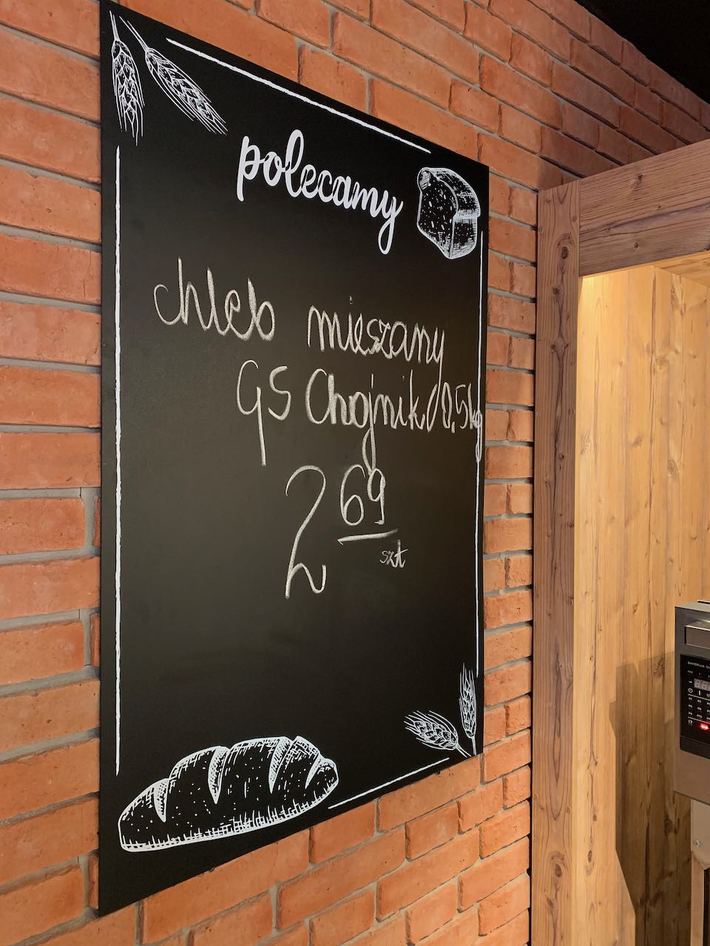 polecamy
chleb mieszany
GS Chojnik/0,5kg
2 69
szt